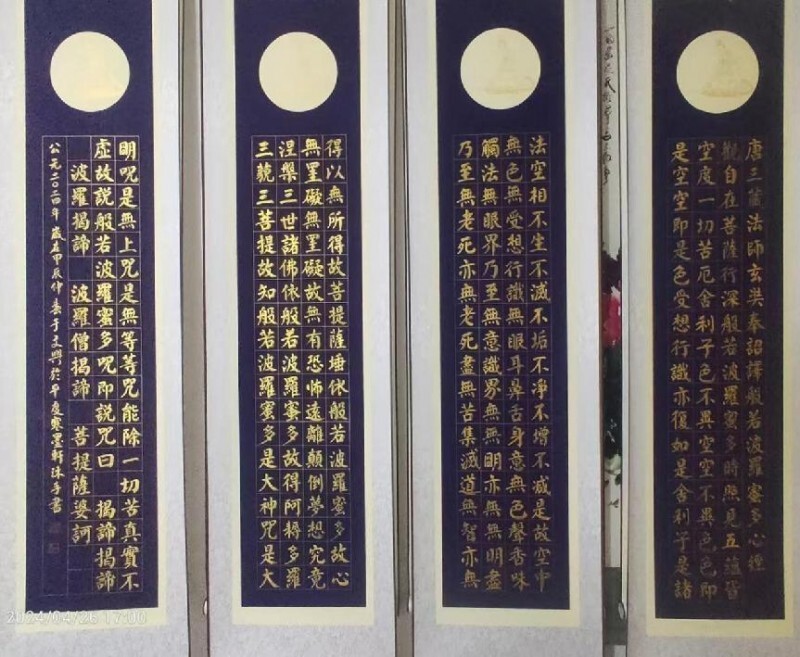 唐三藏法師玄奘奉詔譯般若波羅蜜多心經
觀自在菩薩行深般若波羅蜜多時照見五蘊皆
空度一切苦厄舍利子色不異空空不異色色即
是空空即是色受想行識亦復如是舍利子是諸
法空相不生不滅不垢不淨不增不減是故空中
無色無受想行識無眼耳鼻舌身意無色聲香味
觸法無眼界乃至無意識界無無明亦無無明盡
乃至無老死亦無老死盡無苦集滅道無智亦無
得以無所得故菩提薩埵依般若波羅蜜多故心
無罣礙無罣礙故無有恐怖遠離顛倒夢想究竟
涅槃三世諸佛依般若波羅蜜多故得阿耨多羅
三藐三菩提故知般若波羅蜜多是大神咒是大
明呪是無上咒是無等等咒能除一切苦真實不
虛故說般若波羅蜜多呪即說咒曰 揭諦揭諦
波羅揭諦 波羅僧揭諦 菩提薩婆訶
公元二〇二四年歲在甲辰仲春于文興於平度寒墨軒沐手書
2024/04/26 17:00